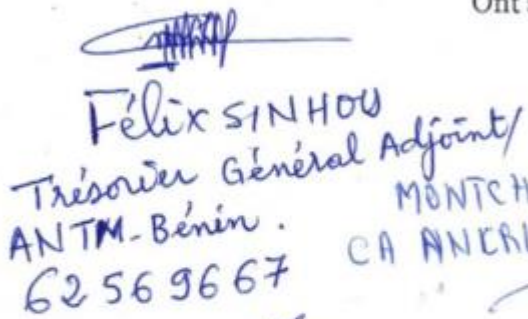 Ont
Félix SINHOU
Trésorier Général Adjoint/
ANTM-Bénin.
62569667
MONTCH
CA